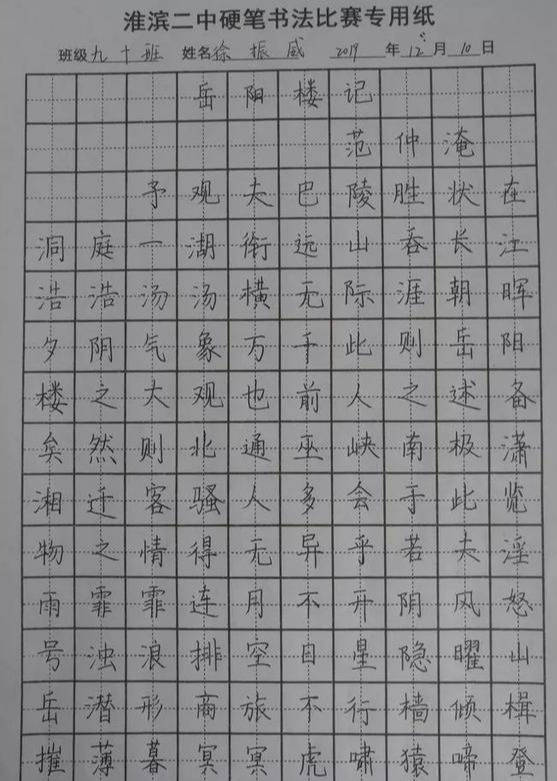 淮滨二中硬笔书法比赛专用纸
班级九十班 姓名徐振威 2019年12月10日
岳阳楼记
范仲淹
予观夫巴陵胜状在
洞庭一湖衔远山吞长江
浩浩汤汤横无际涯朝晖
夕阴气象万千此则岳阳
楼之大观也前人之述备
矣然则北通巫峡南极潇
湘迁客骚人多会于此览
物之情得无异乎若夫淫
雨霏霏连月不开阴风怒
号浊浪排空日星隐曜山
岳潜形商旅不行樯倾楫
摧薄暮冥冥虎啸猿啼登